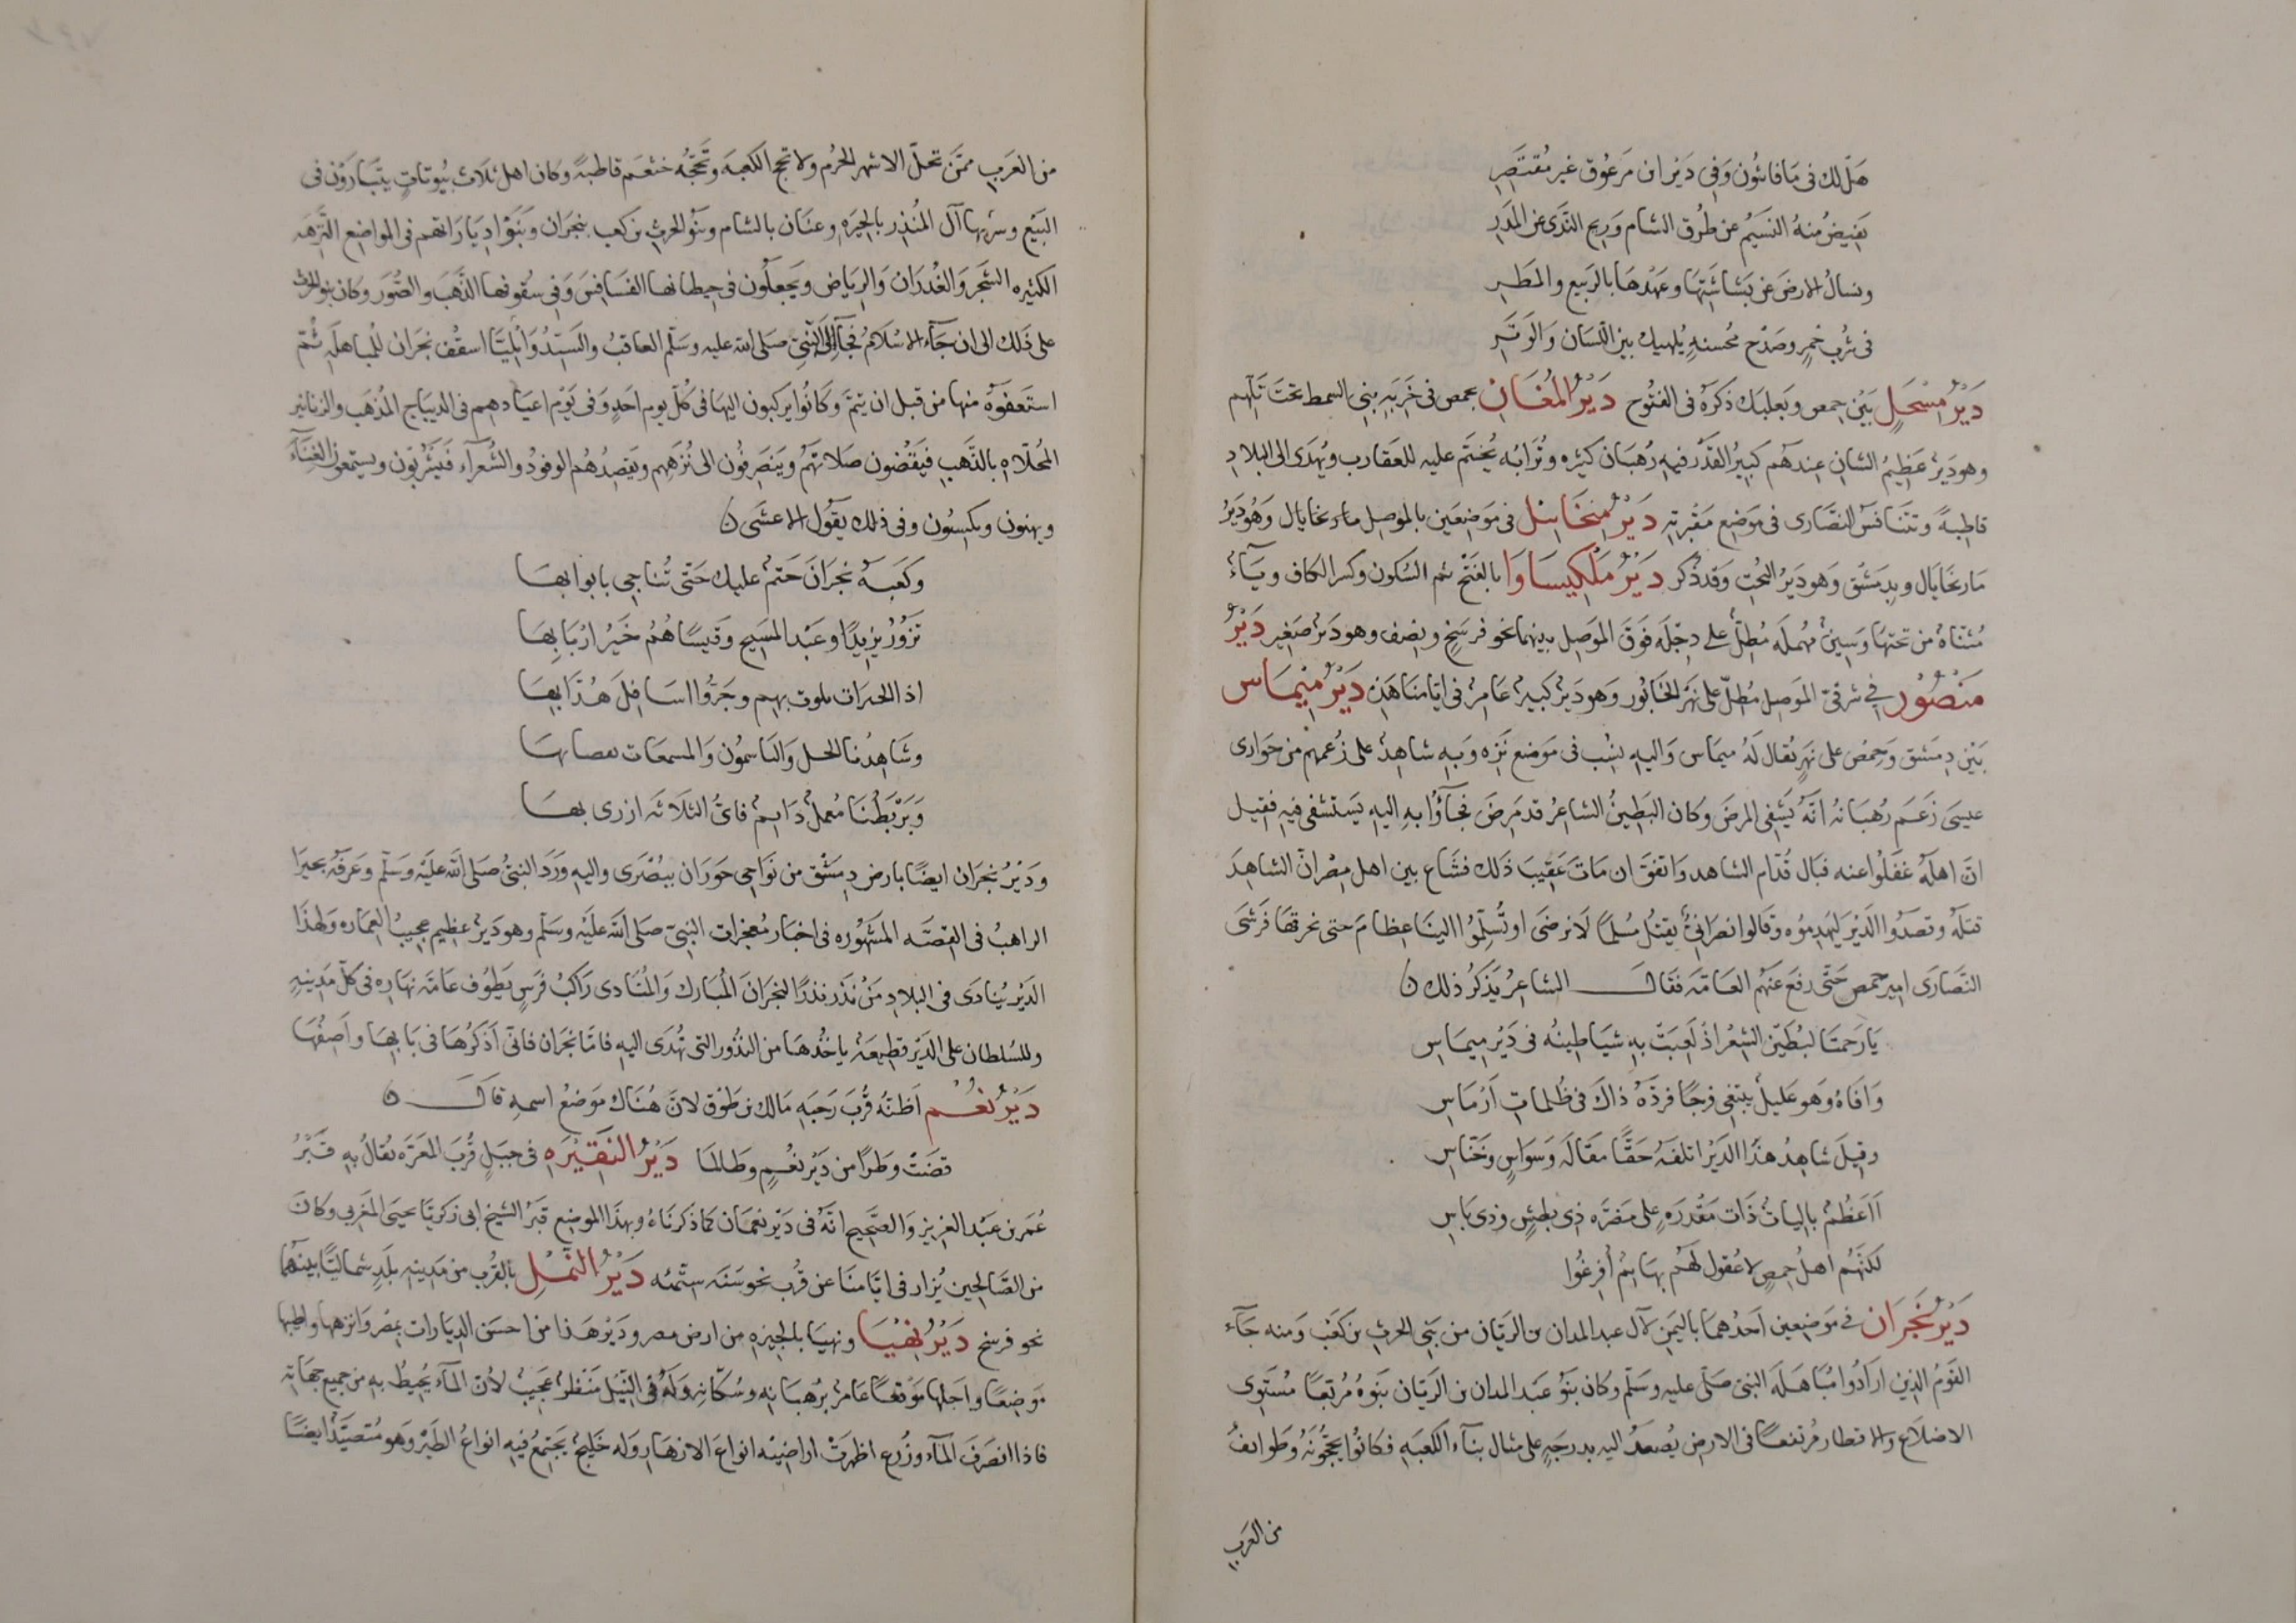 هَل لك فى مَا فاثون وَفِى دَير ان مَرعُوق غير مُقتَصِرِ
يَفيضُ منهُ النَسيمُ عن طُرق الشام وَرِيح النَّدَى عن المَدَرِ
ونسالُ الارضَ عن بَشاشَتِهَا وعَهدهَا بالرَبيع والمَطَرِ
فى شُرب خمرٍ وصَدْح مُحسنهٍ يُلهيك بين اللسَان وَالوَتَرِ
دَيْرُ مِسْحَلٍ بَيْن حِمص وبَعلبَك ذكرَهُ فى الفتُوح دَيْرُ المُغَانِ بحمص فى خَرِبَهِ بنى السمط تحتَ تَلِّهم
وهو دَيرٌ عَظيمُ الشانِ عندهُم كَبيرُ القَدْر فيهِ رُهبَان كثيره وتُرَابُه يُختَم عليه للعقارب ويُهدَى الى البلادِ
قاطبةً وتتنافسُ النصَّارى فى موضع مَقبرَتِهِ دَيرُ مِيخَائيل فى مَوضِعَين بالموصِل مار نخايال وَهُو دَيرُ
مَار نخَايَال وبدِمَشْق وَهو دَيرُ البُختِ وَقد ذُكر دَيْرُ مَلْكيسَاوَا بالفَتْح ثم السُكون وكسر الكاف ويَآءٌ
مُثنّاةٌ من تحتهَا وَسِينٌ مُهمَلَه مُطِلٌّ على دِجْلَه فَوقَ المَوصِل بينهما نحو فرسَخٍ ونِصف وهو دَيرٌ صَغير دَيْرُ
مَنصُوْر فى شرقىّ المَوصِل مُطِلّ على نهَر الخَابُور وَهو دَيرٌ كبيرٌ عَامرٌ فى ايّامنَا هَذِه دَيْرُ مِيْمَاس
بَيْن دِمَشق وَحِمصُ على نهَرٍ يُقال لَهُ ميمَاس وَاليهِ نسِب فى مَوضع نَزِه وَبهِ شاهِدٌ على زُعمهم من حَوارى
عيسى زَعَم رُهبَانه انّهُ يَشفِى المرضَى وَكان البَطِينُ الشاعِرُ قد مَرِضَ فجَآؤُا بهِ اليْهِ يَستشفى فيهِ فقيل
انّ اهلَهُ غفَلُوا عنه فبَال قُدّام الشاهد وَاتفقَ ان مَاتَ عَقِيبَ ذلك فشَاع بين اهل حِمْص انّ الشاهِدَ
قتلَهُ وقصَدُوا الدَيْرَ ليَهدِمُوه وقَالوا نصرَانىٌّ يقتلُ مُسلِمًا لَا نرضَى او تُسلِّمُوا الينَا عِظامَهُ حتى نحرقهَا فرَشى
النَصَّارَى امير حمص حَتّى رفعَ عَنهُم العَامّه فقَال الشاعرُ يَذكرُ ذلك
يَا رَحمتَا لبُطَين الشِعْر اذ لعِبَتْ بهِ شيَاطِينُه فى دَيرِ مِيمَاسِ
وَافَاهُ وَهو عَليلٌ يبتغى فرجًا فردّهُ ذاكَ فى ظُلماتِ اَرْمَاسِ
وقيلَ شاهِدُ هذَا الدَيْر اتلفَهُ حَقًّا مقَالَة وَسوَاسٍ وَخنّاسِ
أاَعظُمٌ بالياتٌ ذَات مَقْدُرَهٍ على مَضَرّه ذِى بطشٍ وذى بَاسِ
لكنّهُم اهلُ حِمصٍ لا عُقولَ لهُم بهَايمٌ أُفرِغُوا
دَيْرُ نَجْرَان فى مَوضِعين احَدُهمَا باليَمن لآل عبد المدان بن الريّان من بَنى الحرث بن كعْب وَمنه جَآء
القَومُ الذين ارَادُوا مُبَاهَلَه النبىّ صَلّى عليه وسَلّم وكان بَنُو عَبد المدان بن الرَيّان بَنَوهُ مُربّعًا مُستوى
الاضلَاع والاقطار مُرتفعًا فى الارض يُصعَدُ اليه بدرجَهٍ على مثال بنَآء الكَعبَهِ فكانُوا يحجُّونَهُ وَطوَايفُ
من العَرَبِ
من العَرَبِ ممّن تحلّ الاشهر الحُرُم ولا تحج الكعبَه وَتَحجّهُ خثعَم قاطبَةً وَكان اهل ثلَاث بيُوتاتٍ يتبَارَوْن فى
البِيَع وسَرِيها آل المُنْذِر بالحِيرَهِ وغسّان بالشام وبَنُو الحَرث بن كعب بنجرَان وَبَنَوْا دِيَارَاتهم فى المواضِع النَّزِهَه
الكثيره الشجَر وَالغُدرَان وَالرِيَاض وَيجعلُون فى حِيطانهَا الفسَافِسَ وَفى سُقوفهَا الذَّهَب والصُّوَر وكان بنو الحَرث
على ذَلك الى ان جَآء الاسْلَامُ فجَآء الَى النَّبىّ صَلى الله عليه وسَلّم العاقبُ والسَّيّدُ وَايليَّا اسقُفُ نجَران للمُباهلَهِ ثُمّ
استعَفَوْهُ منها من قبل ان يتمّ وَكانُوا يركبون اليهَا فى كُلّ يوم احَدٍ وَفى يَوْم اعيَادهم فى الديبَاج المُذهَب والزنانير
المُحلّاهِ بالذَّهَبِ فيَقضُون صَلاتهُم وَيَنصرفُون الى نُزَهِهم وَيقصدُهُم الوفودُ والشُعرآء فيَشرَبُون ويستمعُون الغِنَآءَ
ويهنون ويكسُون وفى ذلك يقُول الاعشَى
وكعبَهُ نجرَانَ حَتمٌ عليك حَتّى تُناخِى بابوابهَا
تزُورُ يزيدًا وعَبْد المَسِيح وقَيسًا هُمُ خَيرُ ارْبَابِهَا
اذا الحبرَات تلوت بهِم وجَرُّوا اسَافِلَ هُدَّابِهَا
وشَاهِدُنا الجل وَاليَاسمُون وَالمسمعَات بقصابهَا
وَبَرْبَطُنَا مُعملٌ دَايمٌ فاىُّ الثلَاثَه ازرى بهَا
ودَيْرُ نَجرَان ايضًا بارض دِمَشْق من نَوَاحِى حَورَان ببُصْرَى واليهِ وَرَدَ النبىُّ صَلى الله عليْه وسَلّم وعَرفَهُ بحيرَا
الراهبُ فى القصَّه المَشهُوره فى اخبَار مُعجزات النبىّ صَلى الله عليْه وسَلم وهو دَيرٌ عظِيم عجيبُ العِمَاره ولهذَا
الدَيْر يُنادَى فى البلادِ مَنْ نَذَرَ نذرًا لنجرَانَ المُبَارك وَالمُنادى رَاكبُ فرَسٍ يَطُوف عَامّه نهَاره فى كلّ مَدِينهٍ
وللسُلطان على الدَيْر قطيعَهٌ ياخُذهَا من النذُور التى تهُدَى اليهِ فامّا نجرَان فانّى اَذكرُهَا فى بَابهَا واَصِفُهَا
دَيْرُ نُعْم اَظنّهُ قُربَ رَحَبَهِ مَالك بن طَوْق لانّ هُنَاك مَوضعٌ اسمهِ قال
قضَتْ وَطرًا من دَيْر نُعْمٍ وطَالمَا دَيْرُ النَقِيْرَهِ فى جبَلٍ قُربَ المعَرّه يُقالُ بهِ قَبْرُ
عُمَر بن عبْد العَزيز وَالصَّحِيح انّهُ فى دَيْر نعمَان كما ذكرنَاهُ وبهَذا الموضِع قبَرُ الشيخ ابى زكريّا يحيَى المَغربى وكَانَ
من الصَّالحِين يُزار فى ايّامنَا عن قُرب نحو سَنَه ستّمئه دَيْرُ النَّمْلِ بالقُرب من مَدِينهِ بَلَدٍ شماليًّا بينهُمَا
نحو فرسَخ دَيْرُ نِهْيَا ونهيَا بالجيزهِ من ارض مصر ودَيْرُ هَذا من احسَن الديَارات بمصْر وَانزهِهَا واطيبها
مَوضِعًا واَجلها مَوقعًا عَامرٌ برُهبَانِهِ وسُكّانِه وَلَهُ فى النّيْل مَنظرٌ عَجيبٌ لأنّ المآء يُحيطُ بهِ من جميع جهَاتِه
فاذا انصَرَفَ المآء وزُرع اظهَرَتْ اراضِيه انوَاعَ الازهَار وله خَليجٌ يَجتمِعُ فيهِ انوَاعُ الطَيْر وَهو مُتصيَّدٌ ايضًا